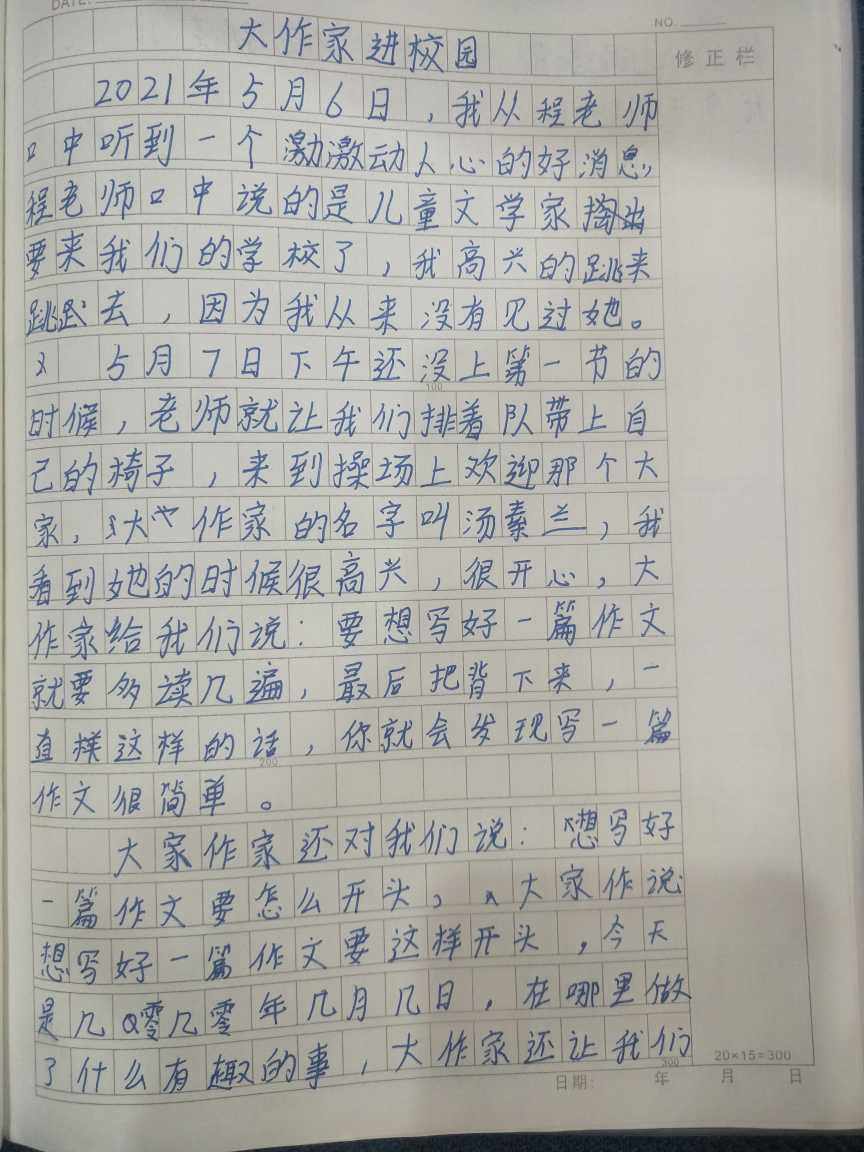 DATE:
NO.
大作家进校园
修正栏
2021年5月6日，我从程老师
口中听到一个激激动人心的好消息，
程老师口中说的是儿童文学家掏出
要来我们的学校了，我高兴的跳来
跳去，因为我从来没有见过她。
5月7日下午还没上第一节的
100
时候，老师就让我们排着队带上自
己的椅子，来到操场上欢迎那个大
家，大作家的名字叫汤素兰，我
看到她的时候很高兴，很开心，大
作家给我们说：要想写好一篇作文
就要多读几遍，最后把背下来，一
直样这样的话，你就会发现写一篇
200
作文很简单。
大家作家还对我们说：想写好
一篇作文要怎么开头，大家作说：
想写好一篇作文要这样开头，今天
是几零几零年几月几日，在哪里做
了什么有趣的事，大作家还让我们
300
20×15=300
日期： 年 月 日